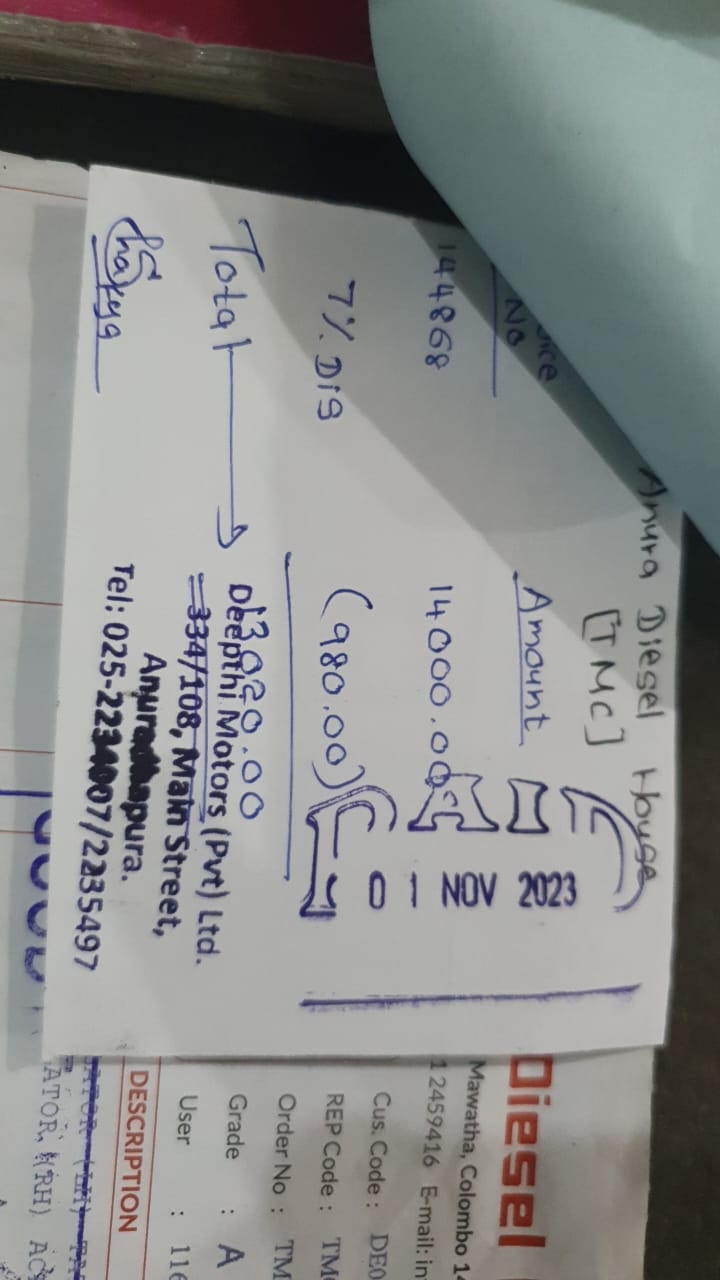 Anura Diesel House
[TMC]
No
Amount
144868 14000.00
7% Dis (980.00)
Total → 13020.00
01 NOV 2023
Deepthi Motors (Pvt) Ltd.
334/108, Main Street,
Anuradhapura.
Tel: 025-2234007/2235497
Diesel
Mawatha, Colombo 14
12459416 E-mail: in
Cus. Code : DE0
REP Code : TM
Order No : TM
Grade : A
User : 116
DESCRIPTION
ATOR (RH) AC